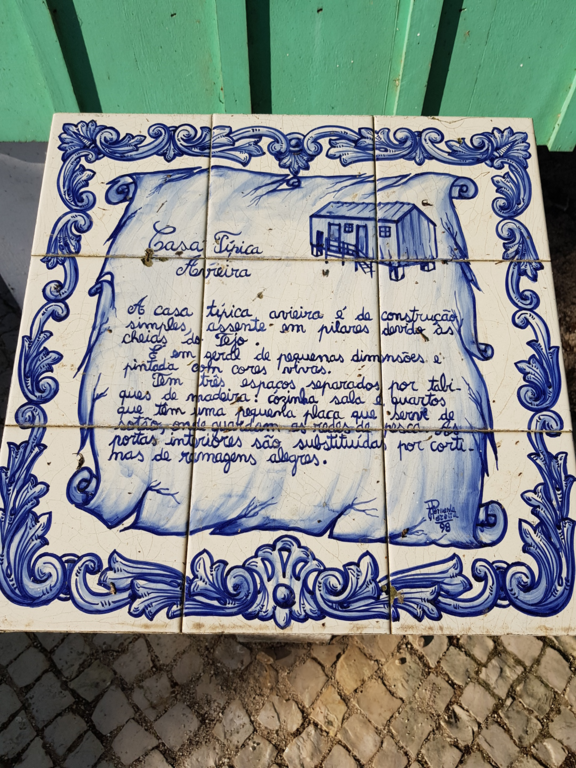 Casa Típica
Avieira
A casa típica avieira é de construção
simples, assente em pilares devido às
cheias do Tejo.
É em geral de pequenas dimensões e
pintada com cores vivas.
Tem três espaços separados por tabi-
ques de madeira: cozinha, sala e quartos
que têm uma pequena placa que serve de
sotão, onde guardam as redes de pesca. As
portas interiores são substituídas por corti-
nas de ramagens alegres.
98